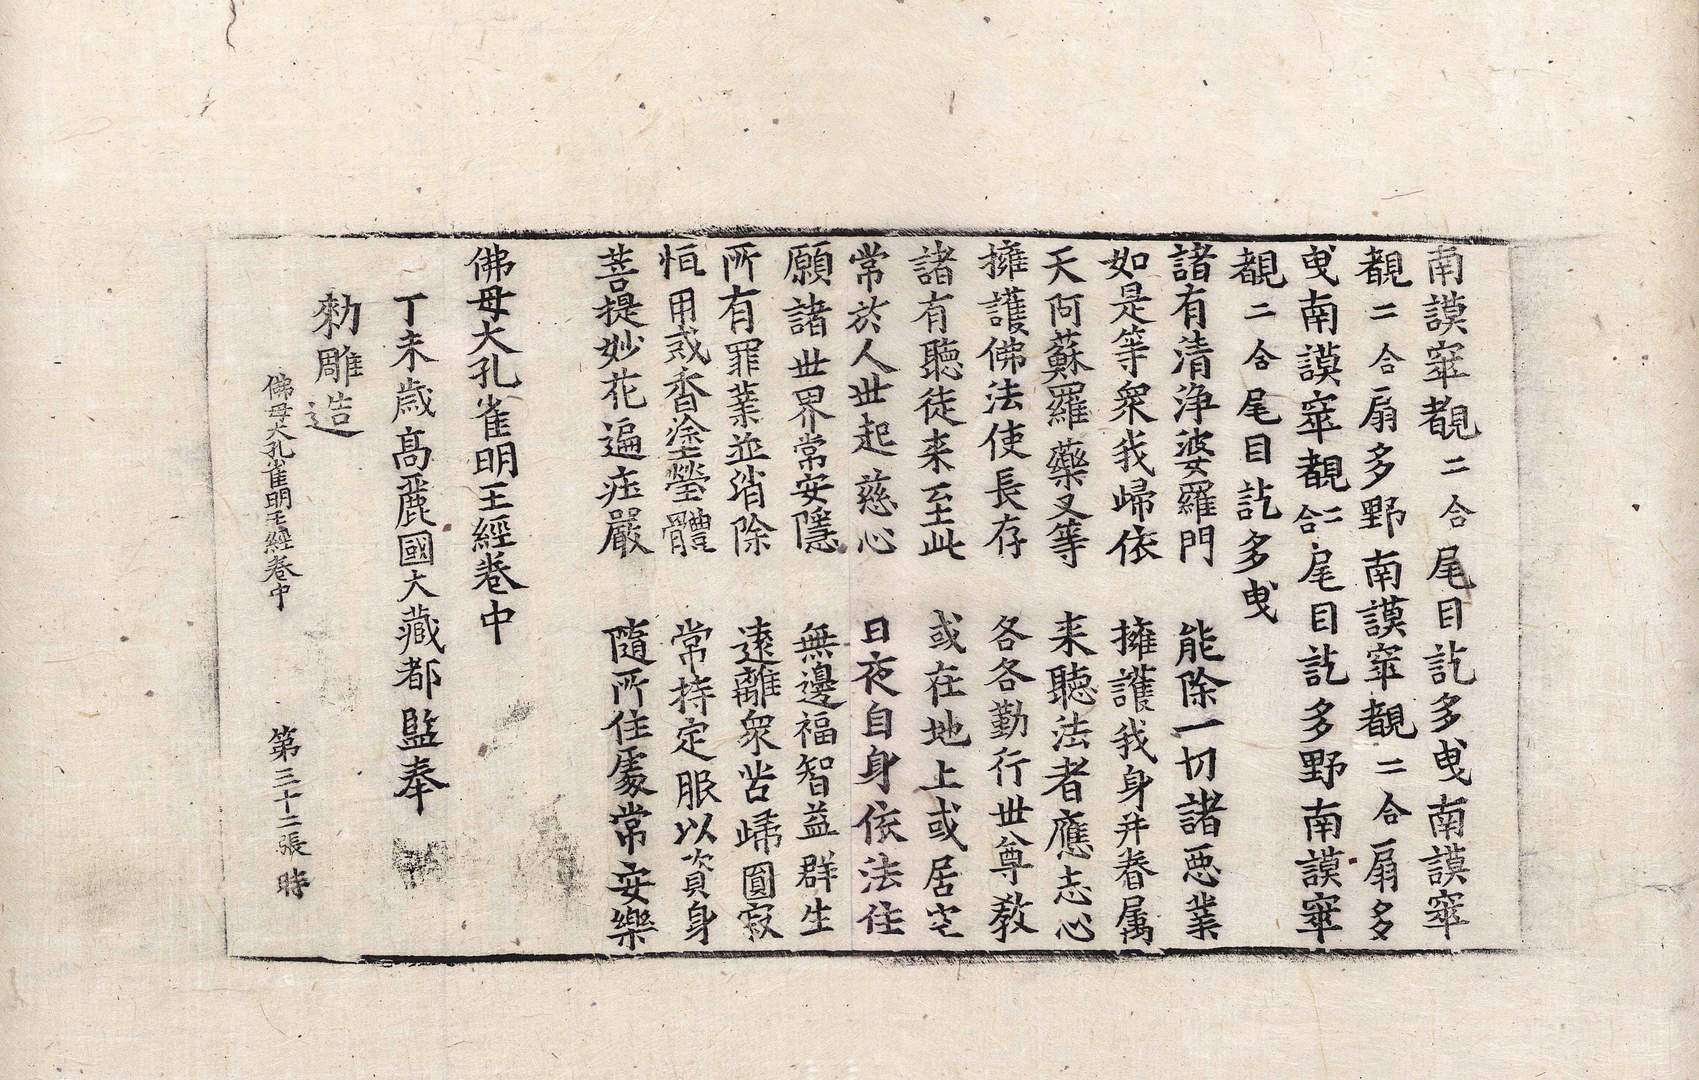 南謨窣覩二合尾目訖多曳南謨窣
覩二合扇多野南謨窣覩二合扇多
曳南謨窣覩二合尾目訖多野南謨窣
覩二合尾目訖多曳
諸有清淨婆羅門 能除一切諸惡業
如是等衆我歸依 擁護我身并眷属
天阿蘇羅藥叉等 来聽法者應志心
擁護佛法使長存 各各勤行世尊敎
諸有聽徒来至此 或在地上或居空
常於人世起慈心 日夜自身依法住
願諸世界常安隱 無邊福智益群生
所有罪業並消除 遠離衆苦歸圓寂
恒用戒香塗瑩體 常持定服以資身
菩提妙花遍莊嚴 隨所住處常安樂
佛母大孔雀明王經卷中
丁未歲高麗國大藏都監奉
勑雕造
佛母大孔雀明王經卷中 第三十二張 時